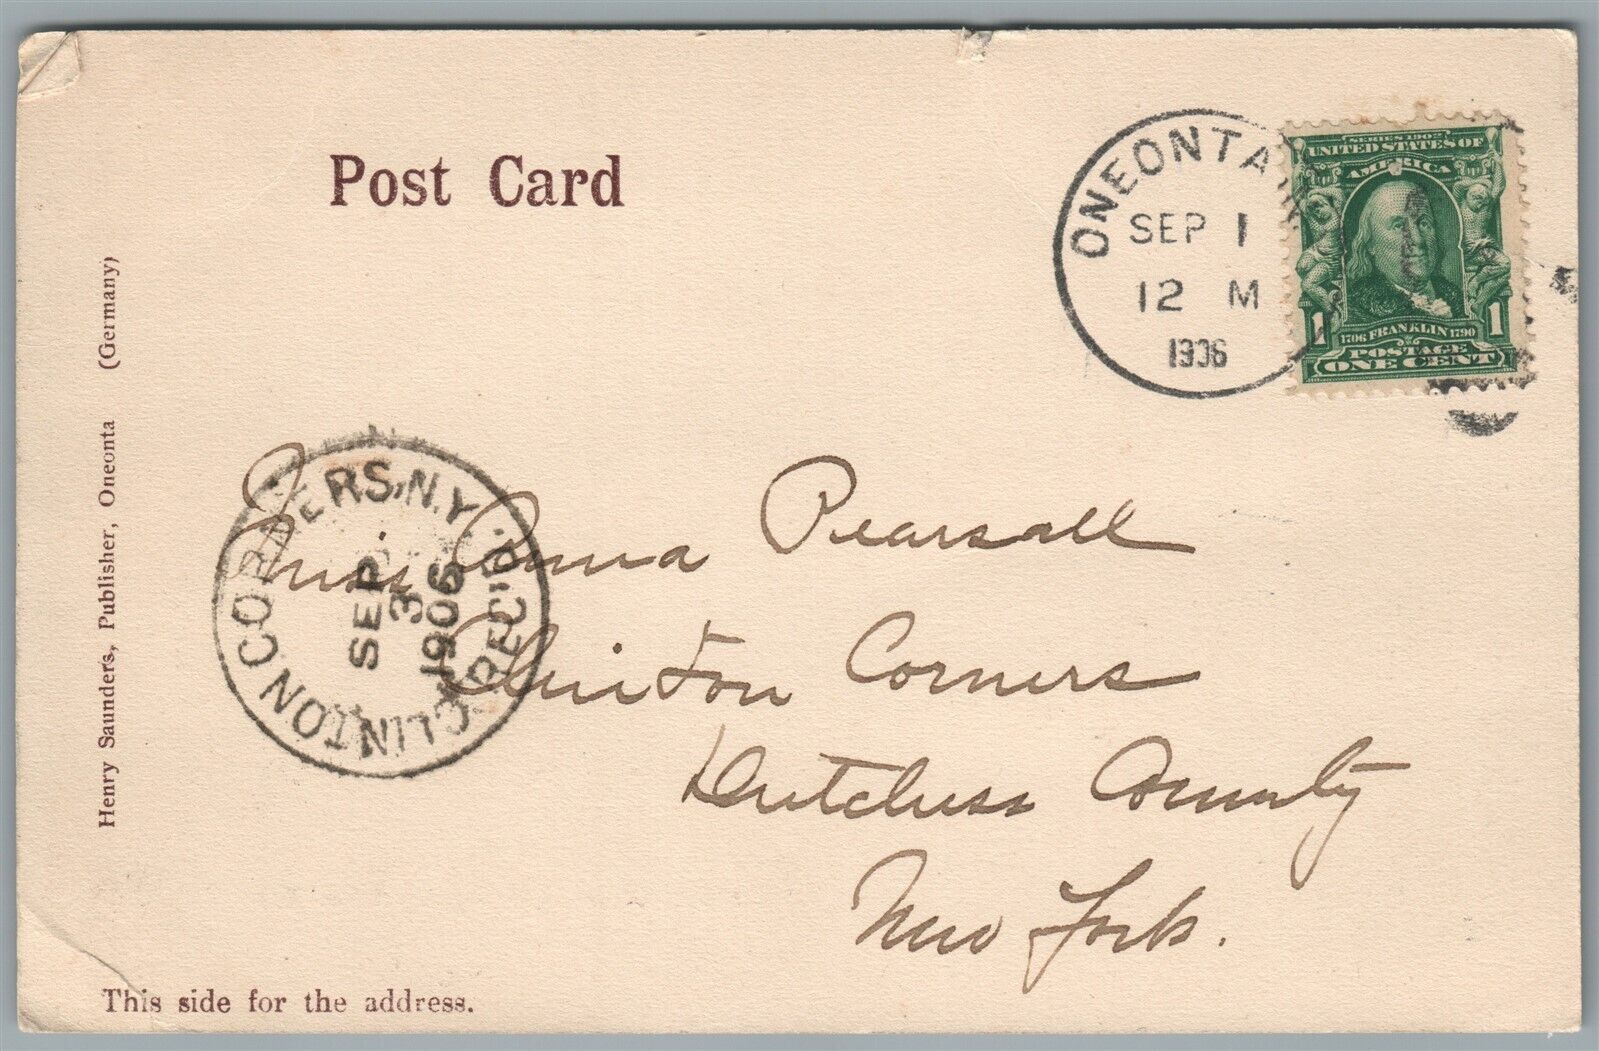 Post Card
ONEONTA
SEP 1
12 M
1906
SERIES 1902
UNITED STATES OF
AMERICA
1 1706 FRANKLIN 1790 1
POSTAGE
ONE CENT
CLINTON CORNERS, N.Y.
SEP
3
1906
REC'D.
Miss Anna Pearsall
Clinton Corners
Dutchess County
New York.
Henry Saunders, Publisher, Oneonta (Germany)
This side for the address.